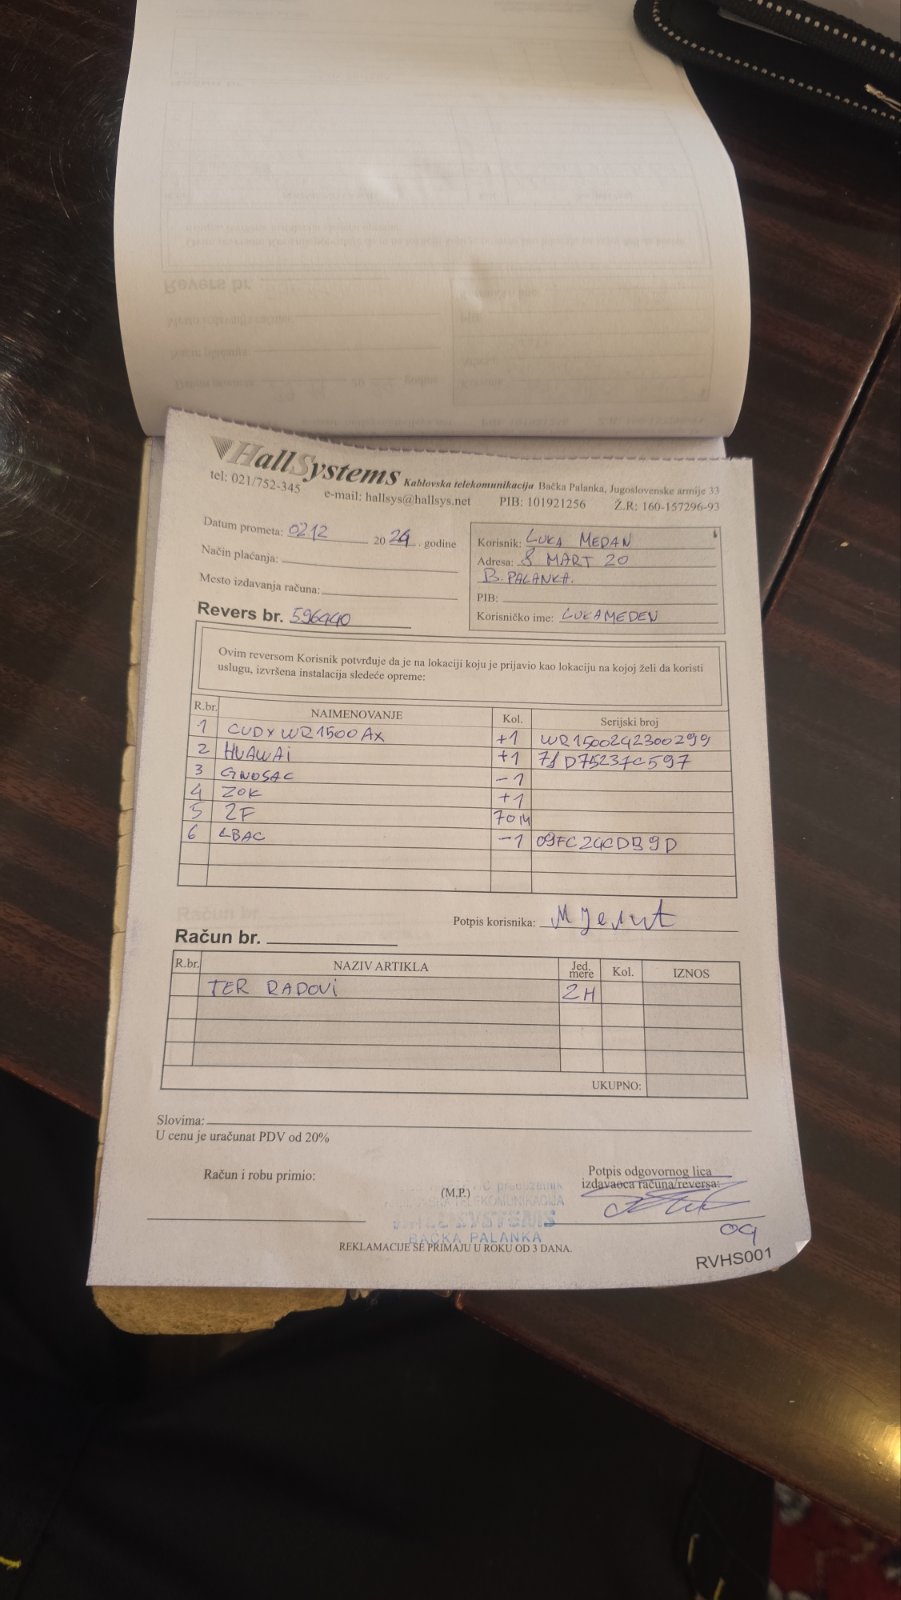 HallSystems Kablovska telekomunikacija Bačka Palanka, Jugoslovenske armije 33
tel: 021/752-345 e-mail: hallsys@hallsys.net PIB: 101921256 Ž.R: 160-157296-93
Datum prometa: 0212 20 24. godine
Način plaćanja:
Mesto izdavanja računa:
Revers br. 596440
Korisnik: LUKA MEDAN
Adresa: 8 MART 20
B. PALANKA.
PIB:
Korisničko ime: LUKAMEDEN
Ovim reversom Korisnik potvrđuje da je na lokaciji koju je prijavio kao lokaciju na kojoj želi da koristi
uslugu, izvršena instalacija sledeće opreme:
R.br. NAIMENOVANJE Kol. Serijski broj
1 CUDY WR1500AX +1 WR1500242300299
2 HUAWAi +1 71D75237C597
3 GNOSAC -1
4 ZOK +1
5 2F 70M
6 LBAC -1 09FC24CDB9D
Potpis korisnika:
Račun br.
R.br. NAZIV ARTIKLA Jed. mere Kol. IZNOS
TER RADOVi 2H
UKUPNO:
Slovima:
U cenu je uračunat PDV od 20%
Račun i robu primio:
(M.P.)
Potpis odgovornog lica
izdavaoca računa/reversa:
BAČKA PALANKA
09
REKLAMACIJE SE PRIMAJU U ROKU OD 3 DANA.
RVHS001